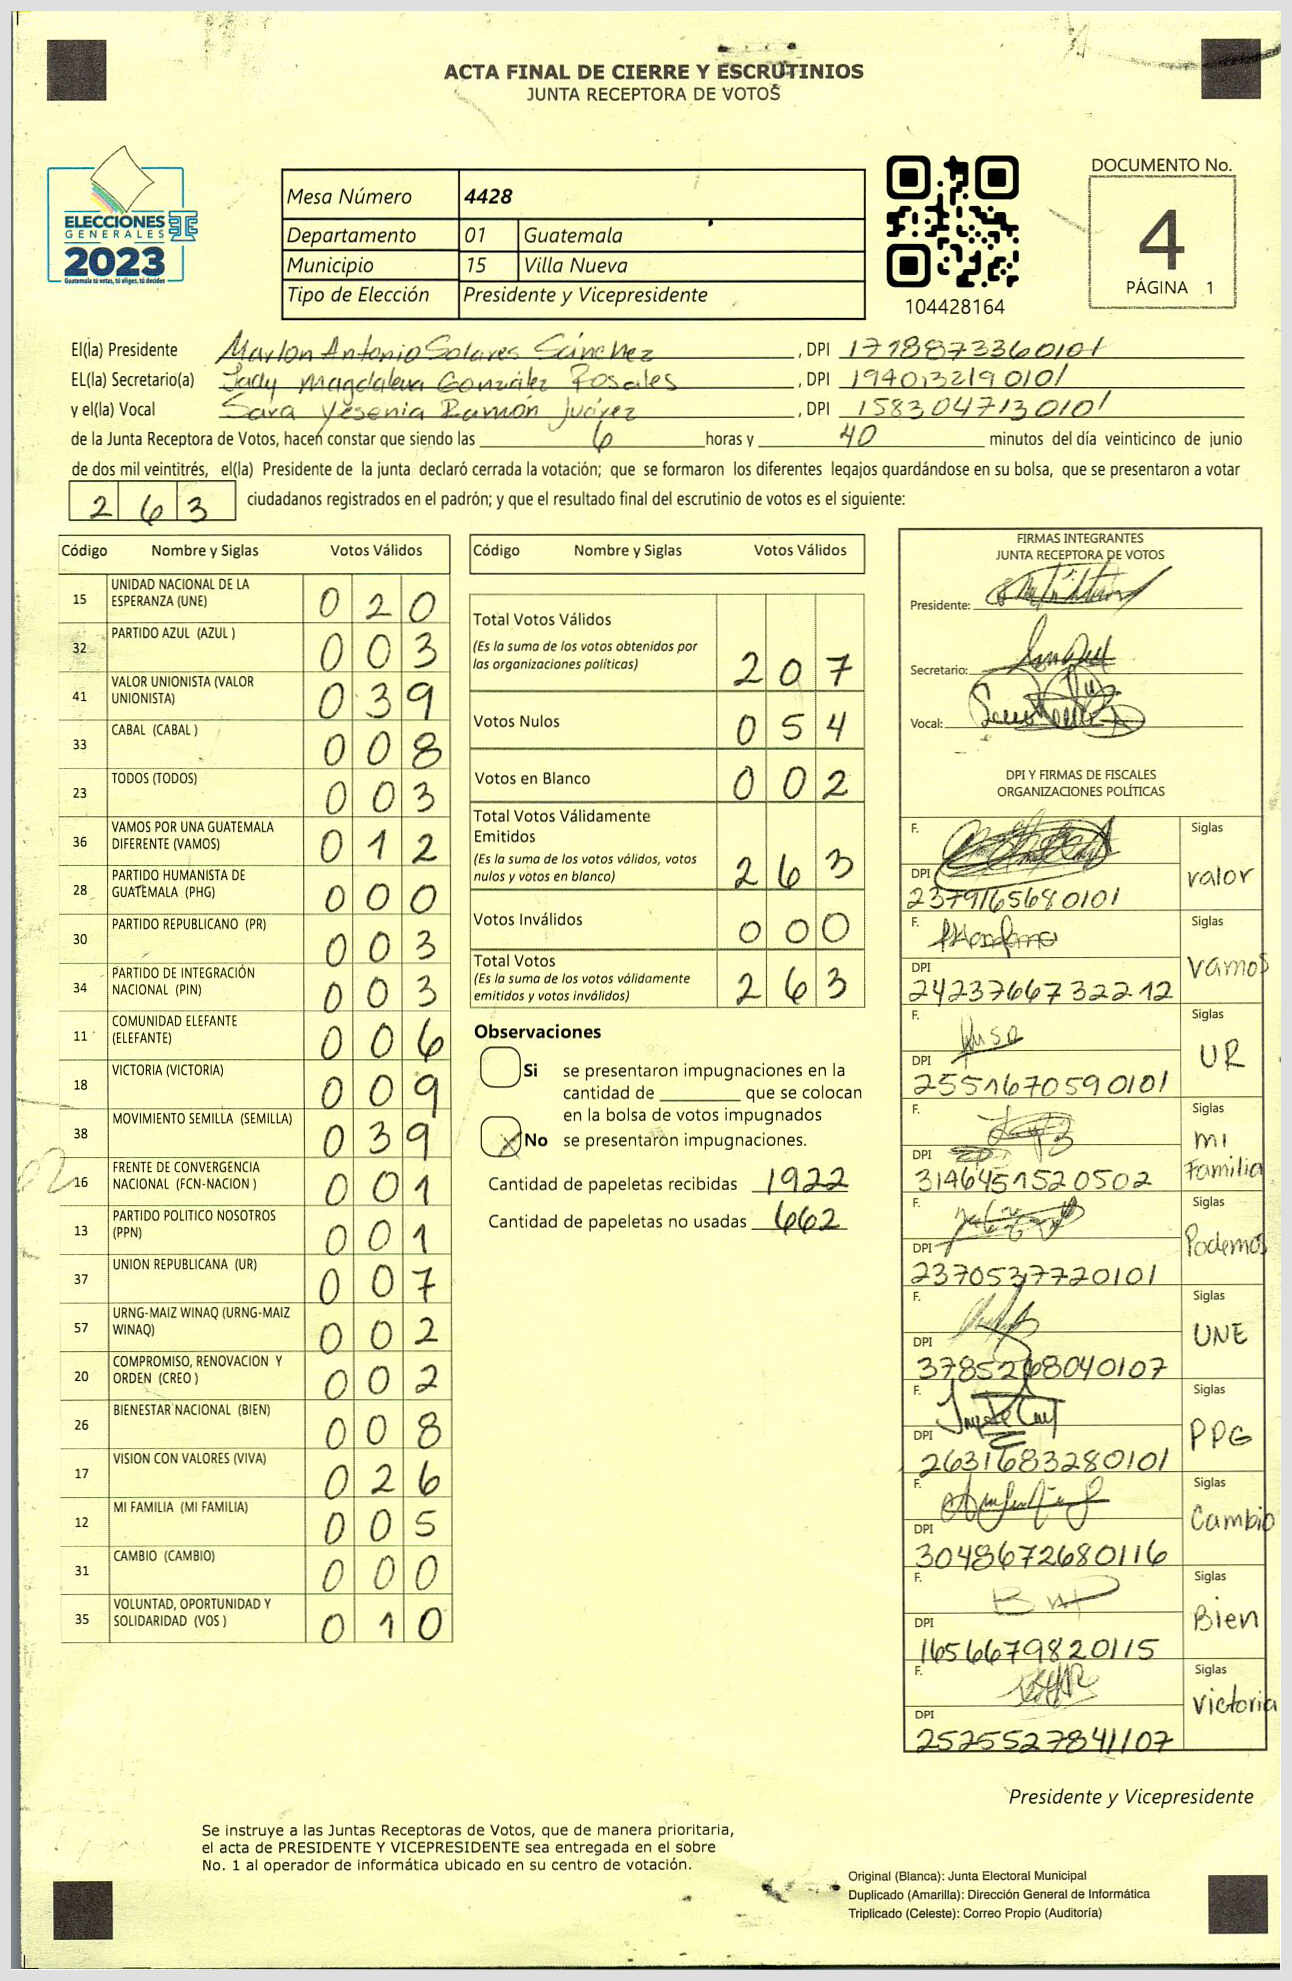 ACTA FINAL DE CIERRE Y ESCRUTINIOS
JUNTA RECEPTORA DE VOTOS
ELECCIONES
GENERALES
2023
Guatemala tú votas, tú eliges, tú decides
Mesa Número 4428
Departamento 01 Guatemala
Municipio 15 Villa Nueva
Tipo de Elección Presidente y Vicepresidente
104428164
DOCUMENTO No.
4
PÁGINA 1
El(la) Presidente Marlon Antonio Solares Sánchez, DPI 1718873360101
EL(la) Secretario(a) Jady Magdalena González Rosales, DPI 1940132190101
y el(la) Vocal Sara Yesenia Ramón Juárez, DPI 1583047130101
de la Junta Receptora de Votos, hacen constar que siendo las 6 horas y 40 minutos del día veinticinco de junio
de dos mil veintitrés, el(la) Presidente de la junta declaró cerrada la votación; que se formaron los diferentes legajos guardándose en su bolsa, que se presentaron a votar
263 ciudadanos registrados en el padrón; y que el resultado final del escrutinio de votos es el siguiente:
Código Nombre y Siglas Votos Válidos
15 UNIDAD NACIONAL DE LA ESPERANZA (UNE) 020
32 PARTIDO AZUL (AZUL ) 003
41 VALOR UNIONISTA (VALOR UNIONISTA) 039
33 CABAL (CABAL ) 008
23 TODOS (TODOS) 003
36 VAMOS POR UNA GUATEMALA DIFERENTE (VAMOS) 012
28 PARTIDO HUMANISTA DE GUATEMALA (PHG) 000
30 PARTIDO REPUBLICANO (PR) 003
34 PARTIDO DE INTEGRACIÓN NACIONAL (PIN) 003
11 COMUNIDAD ELEFANTE (ELEFANTE) 006
18 VICTORIA (VICTORIA) 009
38 MOVIMIENTO SEMILLA (SEMILLA) 039
16 FRENTE DE CONVERGENCIA NACIONAL (FCN-NACION ) 001
13 PARTIDO POLITICO NOSOTROS (PPN) 001
37 UNION REPUBLICANA (UR) 007
57 URNG-MAIZ WINAQ (URNG-MAIZ WINAQ) 002
20 COMPROMISO, RENOVACION Y ORDEN (CREO ) 002
26 BIENESTAR NACIONAL (BIEN) 008
17 VISION CON VALORES (VIVA) 026
12 MI FAMILIA (MI FAMILIA) 005
31 CAMBIO (CAMBIO) 000
35 VOLUNTAD, OPORTUNIDAD Y SOLIDARIDAD (VOS ) 010
Código Nombre y Siglas Votos Válidos
Total Votos Válidos
(Es la suma de los votos obtenidos por
las organizaciones políticas) 207
Votos Nulos 054
Votos en Blanco 002
Total Votos Válidamente
Emitidos
(Es la suma de los votos válidos, votos
nulos y votos en blanco) 263
Votos Inválidos 000
Total Votos
(Es la suma de los votos válidamente
emitidos y votos inválidos) 263
Observaciones
Si se presentaron impugnaciones en la
cantidad de ________ que se colocan
en la bolsa de votos impugnados
X No se presentaron impugnaciones.
Cantidad de papeletas recibidas 1922
Cantidad de papeletas no usadas 662
FIRMAS INTEGRANTES
JUNTA RECEPTORA DE VOTOS
Presidente:
Secretario:
Vocal:
DPI Y FIRMAS DE FISCALES
ORGANIZACIONES POLÍTICAS
F. Siglas
DPI valor
2379165680101
F. Siglas
DPI vamos
2423766732212
F. Siglas
DPI UR
2551670590101
F. Siglas
DPI mi Familia
3146451520502
F. Siglas
DPI Podemos
2370537720101
F. Siglas
DPI UNE
3785268040107
F. Siglas
DPI PPG
2631683280101
F. Siglas
DPI Cambio
3048672680116
F. Siglas
DPI Bien
1656679820115
F. Siglas
DPI victoria
2525527841107
Presidente y Vicepresidente
Se instruye a las Juntas Receptoras de Votos, que de manera prioritaria,
el acta de PRESIDENTE Y VICEPRESIDENTE sea entregada en el sobre
No. 1 al operador de informática ubicado en su centro de votación.
Original (Blanca): Junta Electoral Municipal
Duplicado (Amarilla): Dirección General de Informática
Triplicado (Celeste): Correo Propio (Auditoría)